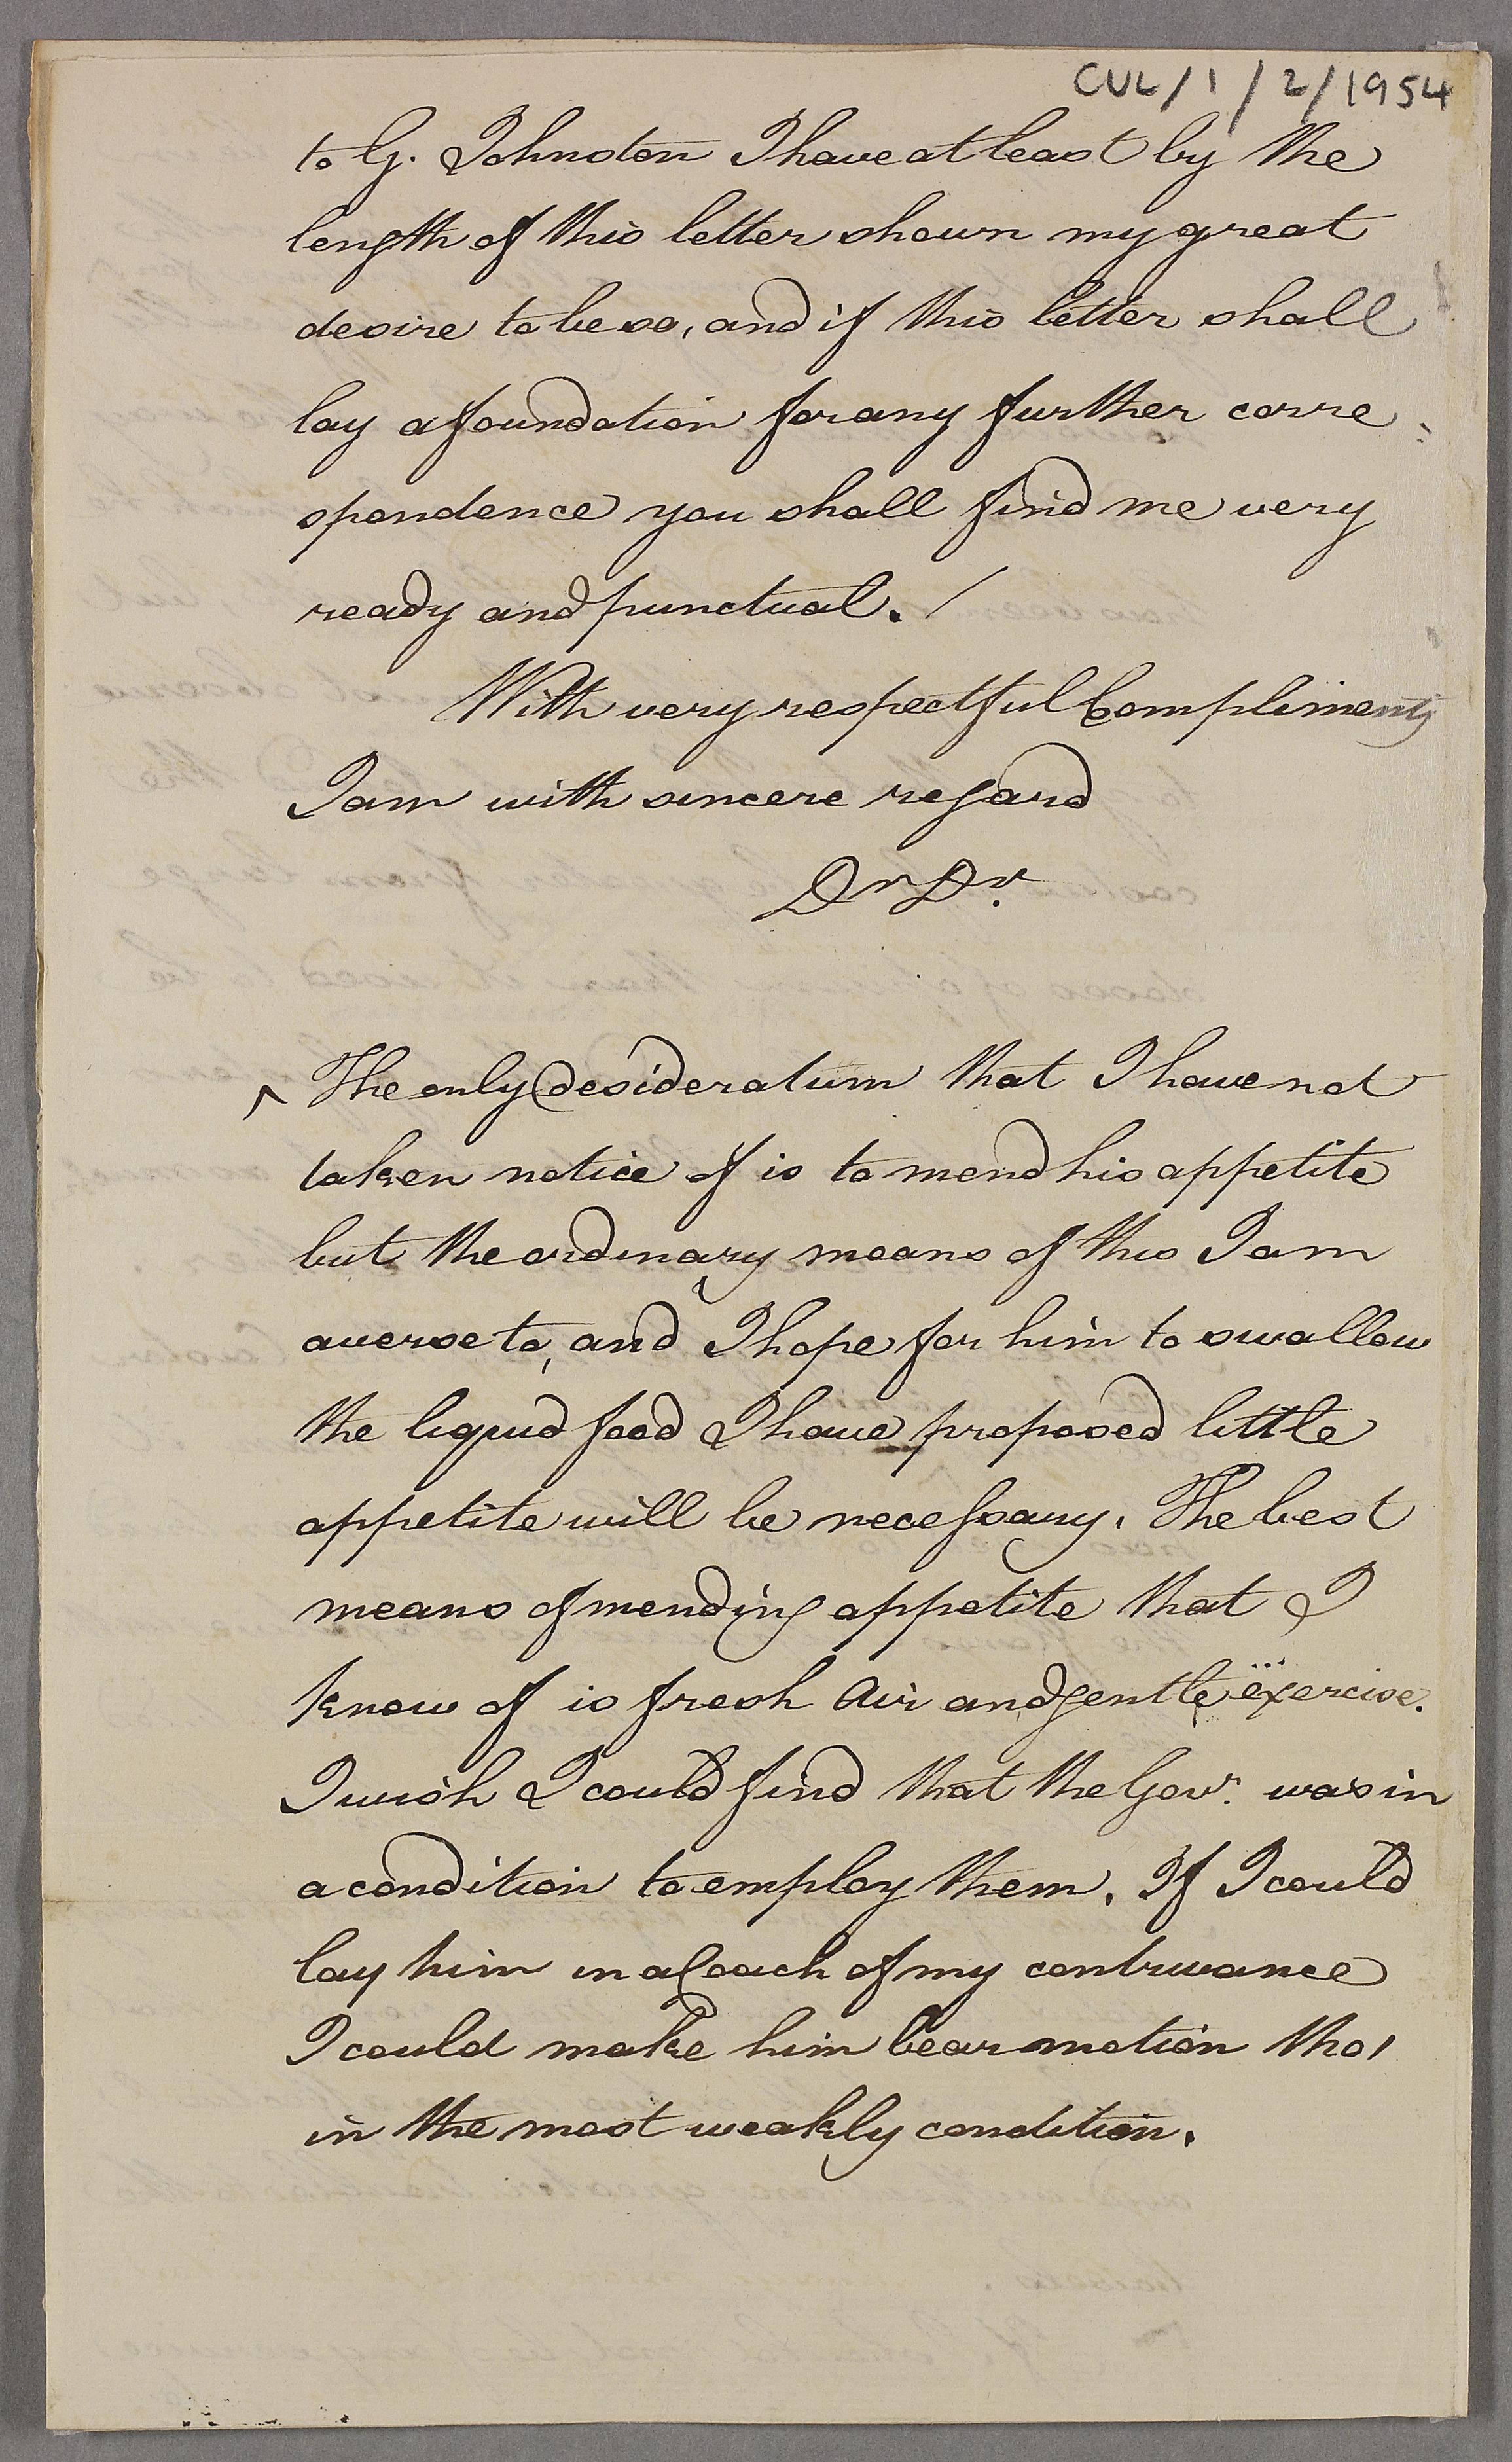 CUL/1/2/1954
to G. Johnston I have at least by the
length of this letter shown my great
desire to be so, and if this letter shall
lay a foundation for any further corre=
spondence you shall find me very
ready and punctual. /
With very respectful Compliments
I am with sincere regard
Dr Dr.
^ The only desideratum that I have not
taken notice of is to mend his appetite
but the ordinary means of this I am
averse to, and I hope for him to swallow
the liquid food I have proposed little
appetite will be necessary. The best
means of mending appetite that I
know of is fresh Air and gentle exercise.
I wish I could find that the Govr. was in
a condition to employ them. If I could
lay him in a Coach of my contrivance
I could make him bear motion tho'
in the most weakly condition.